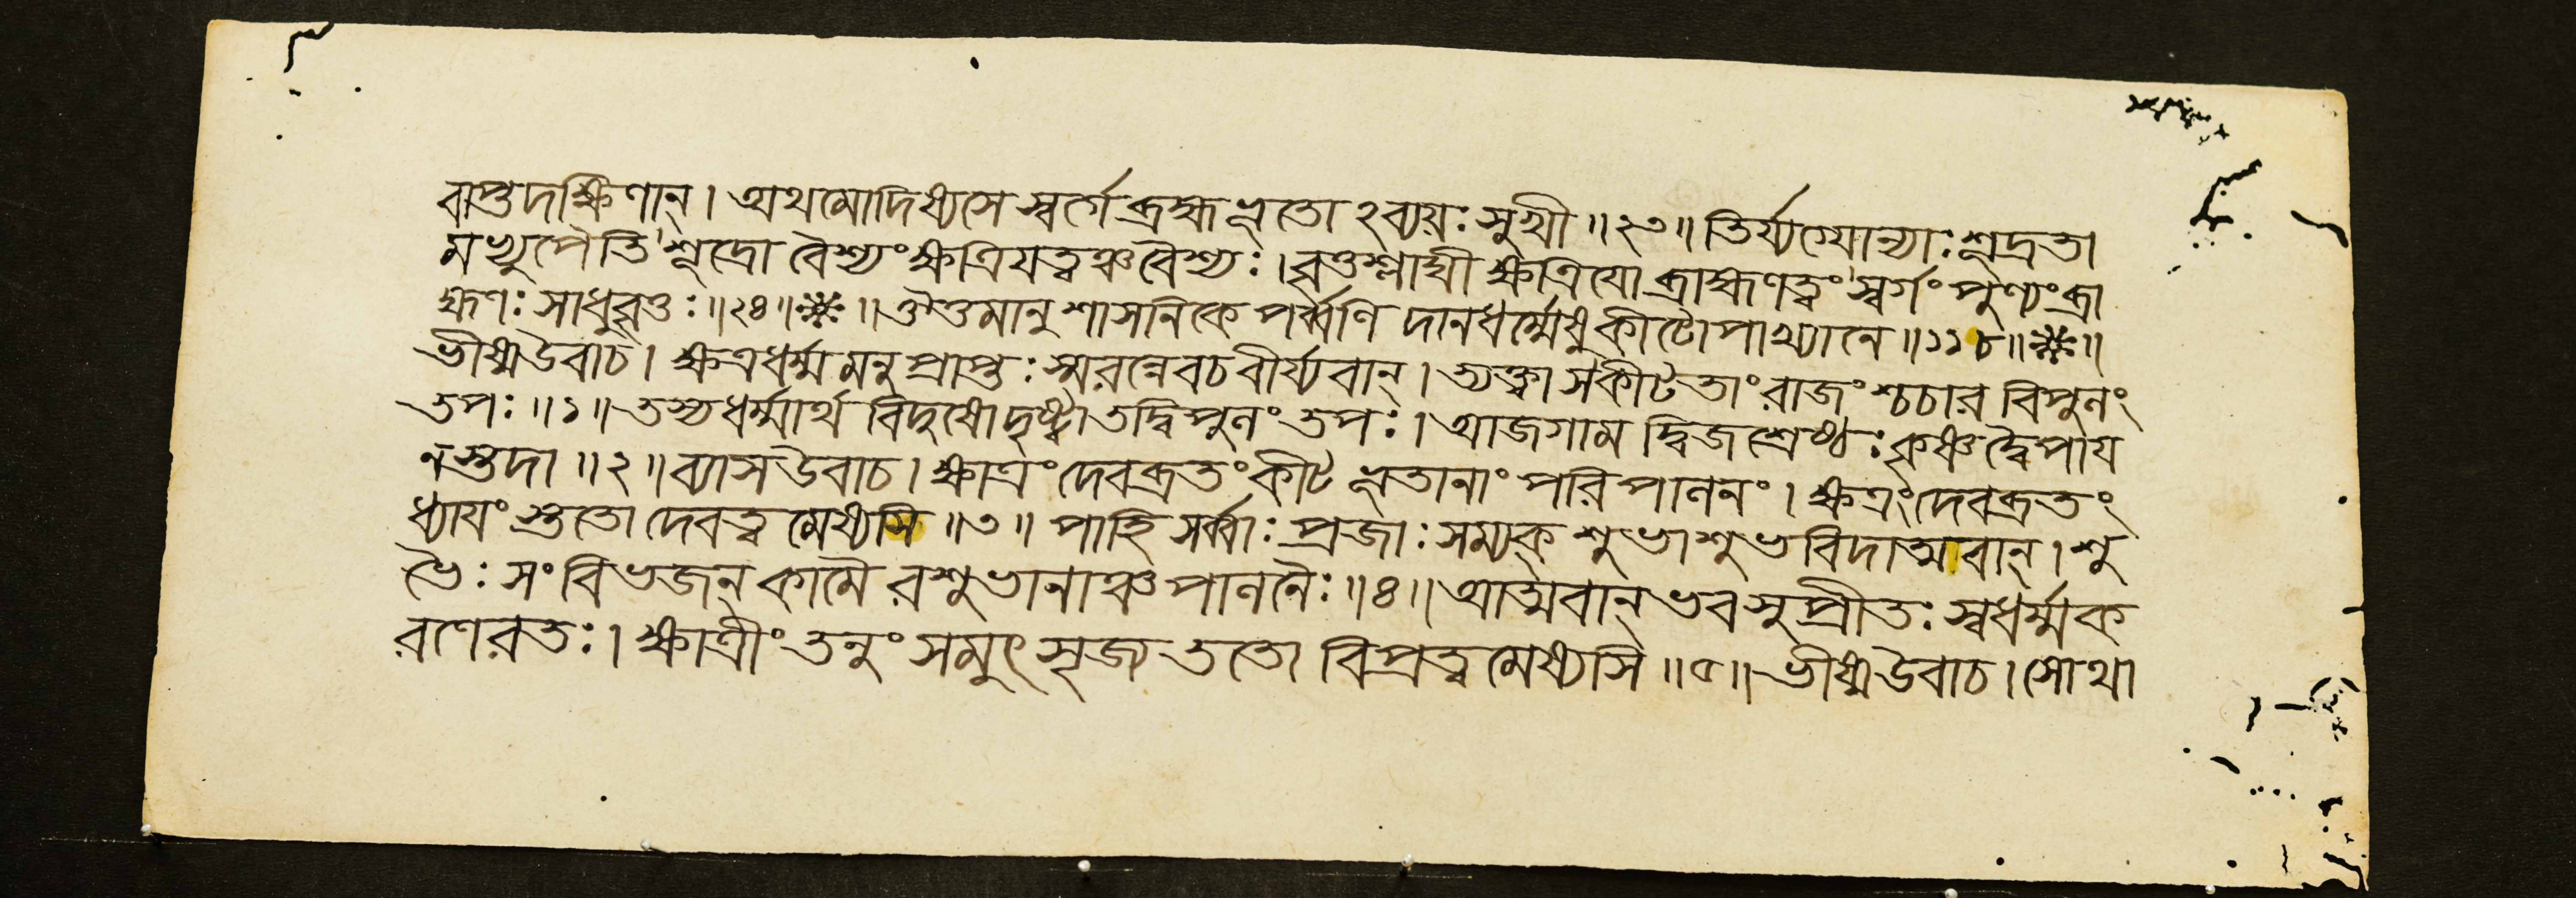 বাপ্তদক্ষিণান্। অথমোদিষ্যসে স্বর্গে ব্রহ্মভূতো ঽব্যয়ঃ সুখী॥২৩॥ তির্য্যগ্যোন্যাঃ শূদ্রতা
মভ্যুপৈতি শূদ্রো বৈশ্যং ক্ষত্রিযত্বঞ্চ বৈশ্যঃ। বৃত্তশ্লাঘী ক্ষত্রিযো ব্রাহ্মণত্বং স্বর্গং পুণ্যং ব্রা
হ্মণঃ সাধুবৃত্তঃ॥২৪॥※॥ ঔত্তমানুশাসনিকে পর্ব্বণি দানধর্ম্মেষু কীটোপাখ্যানে॥১১৮॥※॥
ভীষ্মউবাচ। ক্ষত্রধর্ম্মমনুপ্রাপ্তঃ স্মরন্নেবচ বীর্য্যবান্। ত্যক্ত্বা সকীটতাং রাজংশ্চচার বিপুলং
তপঃ॥১॥ তস্যধর্ম্মার্থ বিদুষোদৃষ্ট্বাতদ্বিপুলং তপঃ। আজগাম দ্বিজশ্রেষ্ঠঃ কৃষ্ণদ্বৈপায
নস্তদা॥২॥ ব্যাস উবাচ। ক্ষাত্রং দেবব্রতং কীট ভূতানাং পরিপালনং। ক্ষত্রং দেবব্রতং
ধ্যাযং স্ততো দেবত্বমেষ্যসি॥৩॥ পাহি সর্ব্বাঃ প্রজাঃ সম্যক্ শুভাশুভবিদাত্মবান্। শু
ভৈঃ সংবিভজন্ কামৈরশুভানাঞ্চ পালনৈঃ॥৪॥ আত্মবান্ ভবসুপ্রীতঃ স্বধর্ম্মাক
রণেরতঃ। ক্ষাত্রীং তনুং সমুৎসৃজ্য ততো বিপ্রত্বমেষ্যসি॥৫॥ ভীষ্মউবাচ। সোথা